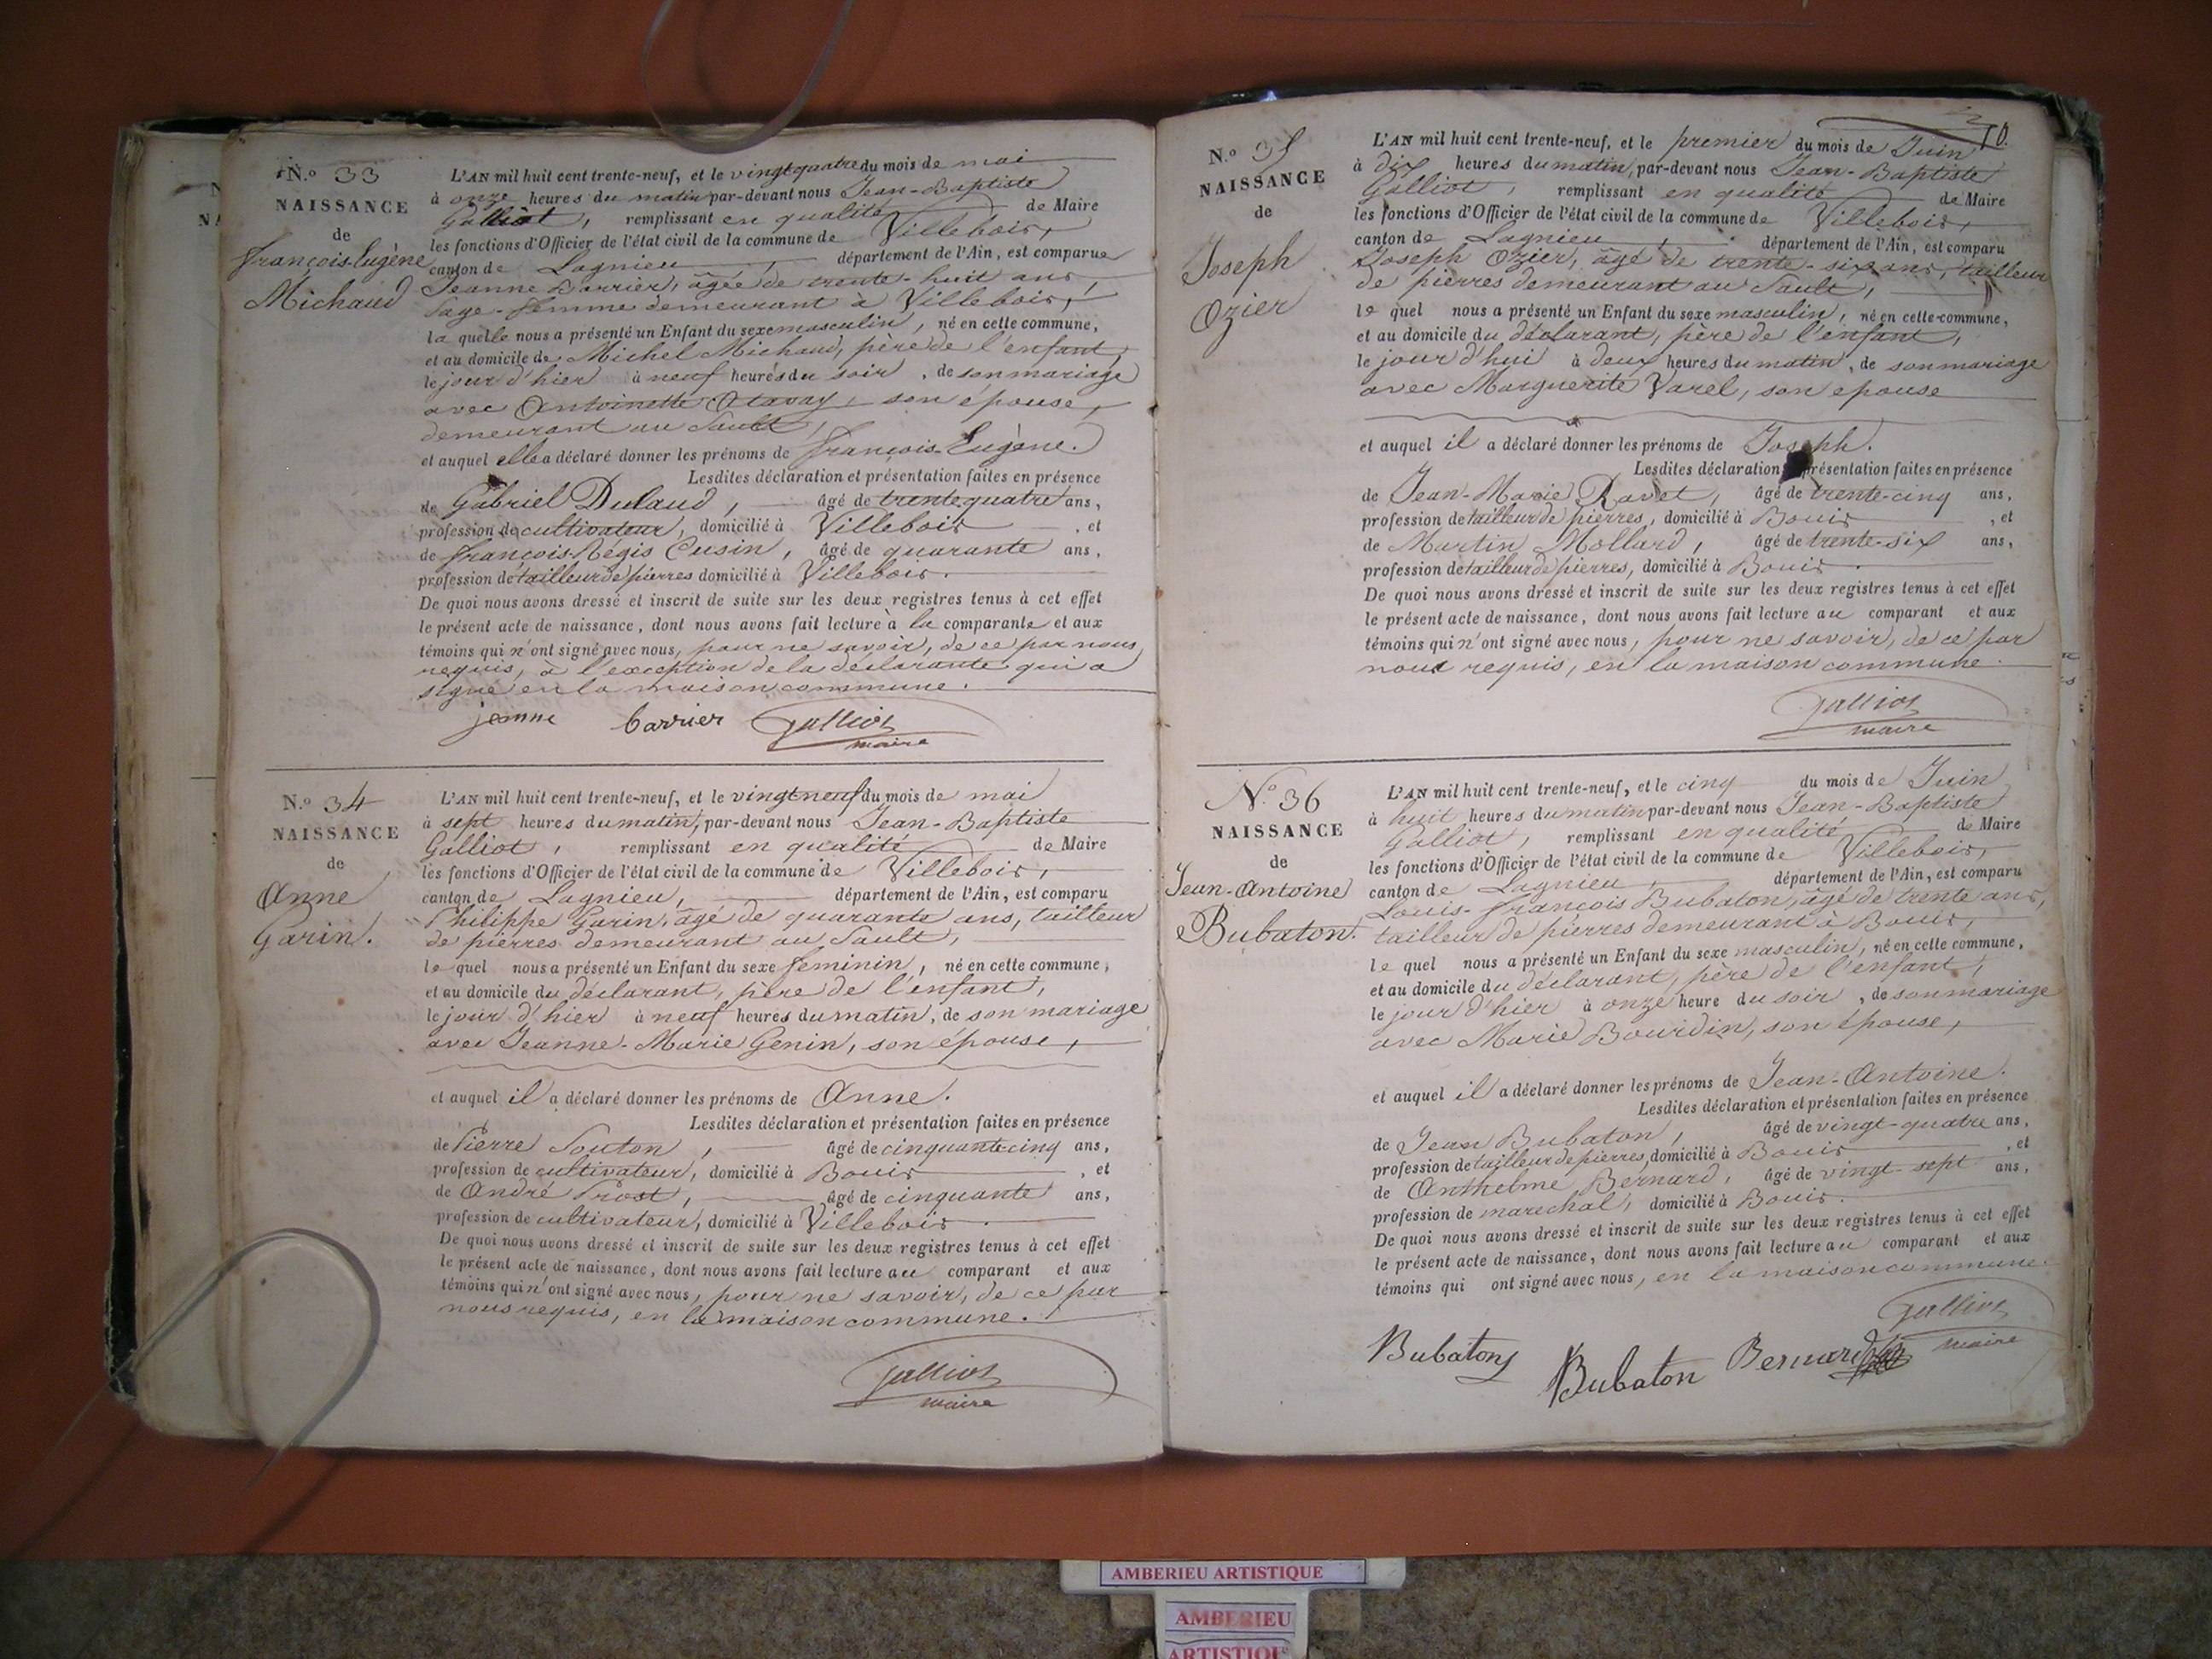 N.o 33
NAISSANCE
de
François-Eugène
Michaud
L'AN mil huit cent trente-neuf, et le vingt quatre du mois de mai
à onze heures du matin par-devant nous Jean-Baptiste
Galliot, remplissant en qualité de Maire
les fonctions d'Officier de l'état civil de la commune de Villebois,
canton de Lagnieu, département de l'Ain, est comparue
Jeanne Barrier, âgée de trente-huit ans,
Sage-femme demeurant à Villebois,
la quelle nous a présenté un Enfant du sexe masculin, né en cette commune,
et au domicile de Michel Michaud, père de l'enfant,
le jour d'hier à neuf heures du soir, de son mariage
avec Antoinette son épouse,
demeurant au Sault,
et auquel elle a déclaré donner les prénoms de François-Eugène.
Lesdites déclaration et présentation faites en présence
de Gabriel Dulaud, âgé de trente-quatre ans,
profession de cultivateur, domicilié à Villebois, et
de François-Régis Cusin, âgé de quarante ans,
profession de tailleur de pierres domicilié à Villebois.
De quoi nous avons dressé et inscrit de suite sur les deux registres tenus à cet effet
le présent acte de naissance, dont nous avons fait lecture à la comparante et aux
témoins qui n'ont signé avec nous, pour ne savoir, de ce par nous
requis, à l'exception de la déclarante qui a
signé en la maison commune.
jeanne barrier Galliot
maire
N.o 34
NAISSANCE
de
Anne
Garin.
L'AN mil huit cent trente-neuf, et le vingt neuf du mois de mai
à sept heures du matin, par-devant nous Jean-Baptiste
Galliot, remplissant en qualité de Maire
les fonctions d'Officier de l'état civil de la commune de Villebois,
canton de Lagnieu, département de l'Ain, est comparu
Philippe Garin, âgé de quarante ans, tailleur
de pierres demeurant au Sault,
le quel nous a présenté un Enfant du sexe feminin, né en cette commune,
et au domicile du déclarant, père de l'enfant,
le jour d'hier à neuf heures du matin, de son mariage
avec Jeanne-Marie Genin, son épouse,
et auquel il a déclaré donner les prénoms de Anne.
Lesdites déclaration et présentation faites en présence
de Pierre Souton, âgé de cinquante-cinq ans,
profession de cultivateur, domicilié à Bouis, et
de André Prost, âgé de cinquante ans,
profession de cultivateur, domicilié à Villebois.
De quoi nous avons dressé et inscrit de suite sur les deux registres tenus à cet effet
le présent acte de naissance, dont nous avons fait lecture au comparant et aux
témoins qui n'ont signé avec nous, pour ne savoir, de ce par
nous requis, en la maison commune.
Galliot
maire
10.
N.o 35
NAISSANCE
de
Joseph
Ozier
L'AN mil huit cent trente-neuf, et le premier du mois de Juin
à dix heures du matin, par-devant nous Jean-Baptiste
Galliot, remplissant en qualité de Maire
les fonctions d'Officier de l'état civil de la commune de Villebois,
canton de Lagnieu, département de l'Ain, est comparu
Joseph Ozier, âgé de trente-six ans, tailleur
de pierres demeurant au Sault,
le quel nous a présenté un Enfant du sexe masculin, né en cette commune,
et au domicile du déclarant, père de l'enfant,
le jour d'hui à deux heures du matin, de son mariage
avec Marguerite Varel, son epouse
et auquel il a déclaré donner les prénoms de Joseph.
Lesdites déclaration présentation faites en présence
de Jean-Marie Ravet, âgé de trente-cinq ans,
profession de tailleur de pierres, domicilié à Bouis, et
de Martin Mollard, âgé de trente-six ans,
profession de tailleur de pierres, domicilié à Bouis.
De quoi nous avons dressé et inscrit de suite sur les deux registres tenus à cet effet
le présent acte de naissance, dont nous avons fait lecture au comparant et aux
témoins qui n'ont signé avec nous, pour ne savoir, de ce par
nous requis, en la maison commune.
Galliot
maire
N.o 36
NAISSANCE
de
Jean-Antoine
Bubaton.
L'AN mil huit cent trente-neuf, et le cinq du mois de Juin
à huit heures du matin par-devant nous Jean-Baptiste
Galliot, remplissant en qualité de Maire
les fonctions d'Officier de l'état civil de la commune de Villebois,
canton de Lagnieu, département de l'Ain, est comparu
Louis-François Bubaton, âgé de trente ans,
tailleur de pierres demeurant à Bouis,
le quel nous a présenté un Enfant du sexe masculin, né en cette commune,
et au domicile du déclarant, père de l'enfant,
le jour d'hier à onze heure du soir, de son mariage
avec Marie Bourdin, son épouse,
et auquel il a déclaré donner les prénoms de Jean-Antoine.
Lesdites déclaration et présentation faites en présence
de Jean Bubaton, âgé de vingt-quatre ans,
profession de tailleur de pierres, domicilié à Bouis, et
de Anthelme Bernard, âgé de vingt-sept ans,
profession de marechal, domicilié à Bouis.
De quoi nous avons dressé et inscrit de suite sur les deux registres tenus à cet effet
le présent acte de naissance, dont nous avons fait lecture au comparant et aux
témoins qui ont signé avec nous, en la maison commune.
Galliot
maire
Bubaton Bubaton Bernard
AMBERIEU ARTISTIQUE
AMBERIEU
ARTISTIQUE